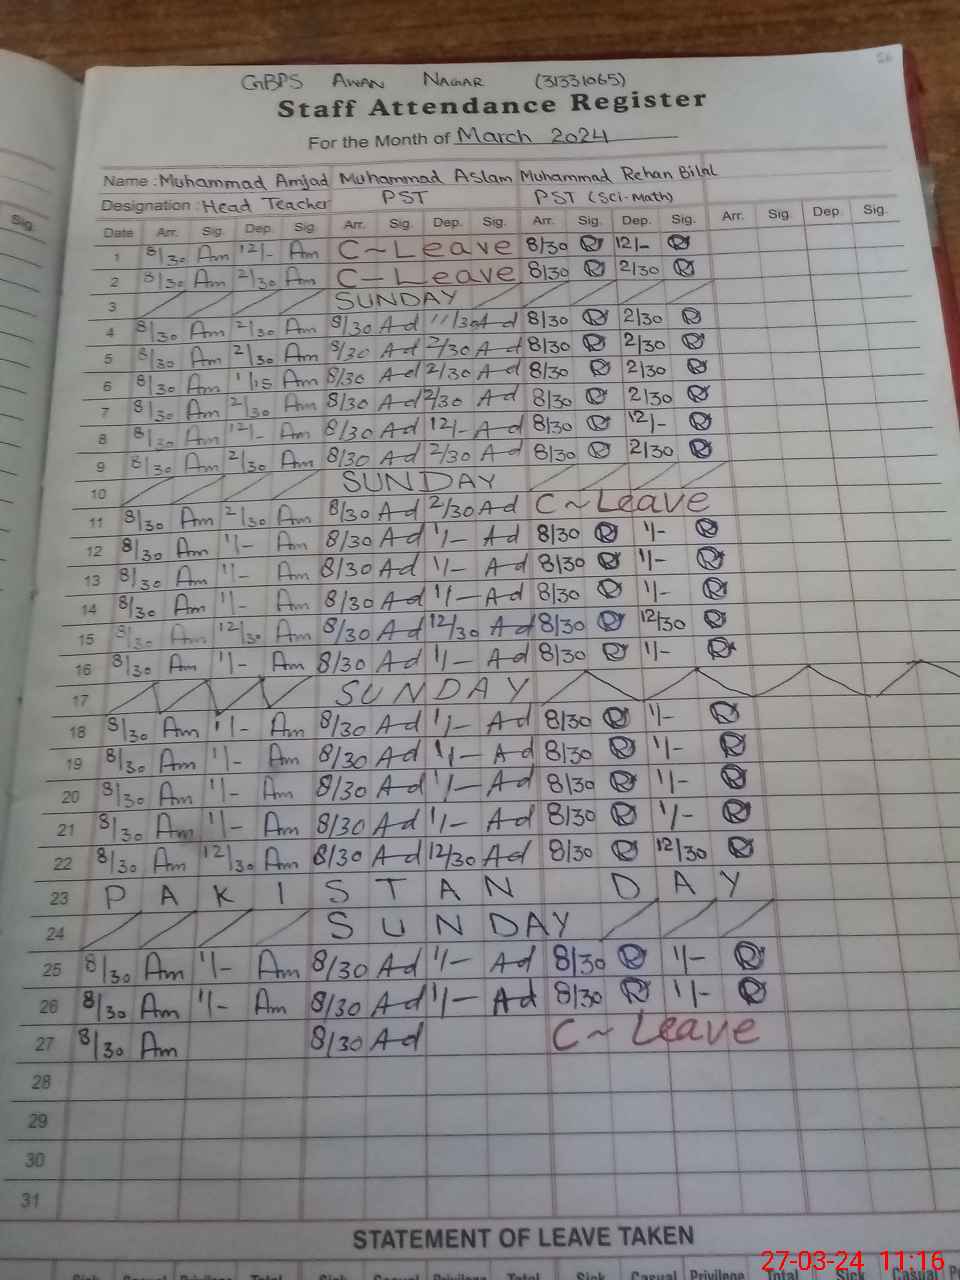 GBPS AWAN NAGAR (31331065)
Staff Attendance Register
For the Month of March 2024
Name : Muhammad Amjad Muhammad Aslam Muhammad Rehan Bilal
Designation : Head Teacher PST PST (Sci-Math)
Sig.
Date Arr. Sig. Dep. Sig. Arr. Sig. Dep. Sig. Arr. Sig. Dep. Sig. Arr. Sig. Dep. Sig.
1 8/30 Am 12/- Am C~Leave 8/30 R 12/- R
2 8/30 Am 2/30 Am C-Leave 8/30 R 2/30 R
3 SUNDAY
4 8/30 Am 2/30 Am 8/30 Ad 11/30 Ad 8/30 R 2/30 R
5 8/30 Am 2/30 Am 8/30 Ad 2/30 Ad 8/30 R 2/30 R
6 8/30 Am 1/15 Am 8/30 Ad 2/30 Ad 8/30 R 2/30 R
7 8/30 Am 2/30 Am 8/30 Ad 2/30 Ad 8/30 R 2/30 R
8 8/30 Am 12/- Am 8/30 Ad 12/- Ad 8/30 R 12/- R
9 8/30 Am 2/30 Am 8/30 Ad 2/30 Ad 8/30 R 2/30 R
10 SUNDAY
11 8/30 Am 2/30 Am 8/30 Ad 2/30 Ad C~Leave
12 8/30 Am 1/- Am 8/30 Ad 1/- Ad 8/30 R 1/- R
13 8/30 Am 1/- Am 8/30 Ad 1/- Ad 8/30 R 1/- R
14 8/30 Am 1/- Am 8/30 Ad 1/- Ad 8/30 R 1/- R
15 8/30 Am 12/30 Am 8/30 Ad 12/30 Ad 8/30 R 12/30 R
16 8/30 Am 1/- Am 8/30 Ad 1/- Ad 8/30 R 1/- R
17 SUNDAY
18 8/30 Am 1/- Am 8/30 Ad 1/- Ad 8/30 R 1/- R
19 8/30 Am 1/- Am 8/30 Ad 1/- Ad 8/30 R 1/- R
20 8/30 Am 1/- Am 8/30 Ad 1/- Ad 8/30 R 1/- R
21 8/30 Am 1/- Am 8/30 Ad 1/- Ad 8/30 R 1/- R
22 8/30 Am 12/30 Am 8/30 Ad 12/30 Ad 8/30 R 12/30 R
23 PAKISTAN DAY
24 SUNDAY
25 8/30 Am 1/- Am 8/30 Ad 1/- Ad 8/30 R 1/- R
26 8/30 Am 1/- Am 8/30 Ad 1/- Ad 8/30 R 1/- R
27 8/30 Am 8/30 Ad C~Leave
28
29
30
31
STATEMENT OF LEAVE TAKEN
Sick Casual Privilege Total Sick Casual Privilege Total Sick Casual Privilege Total Sick Casual
27-03-24 11:16